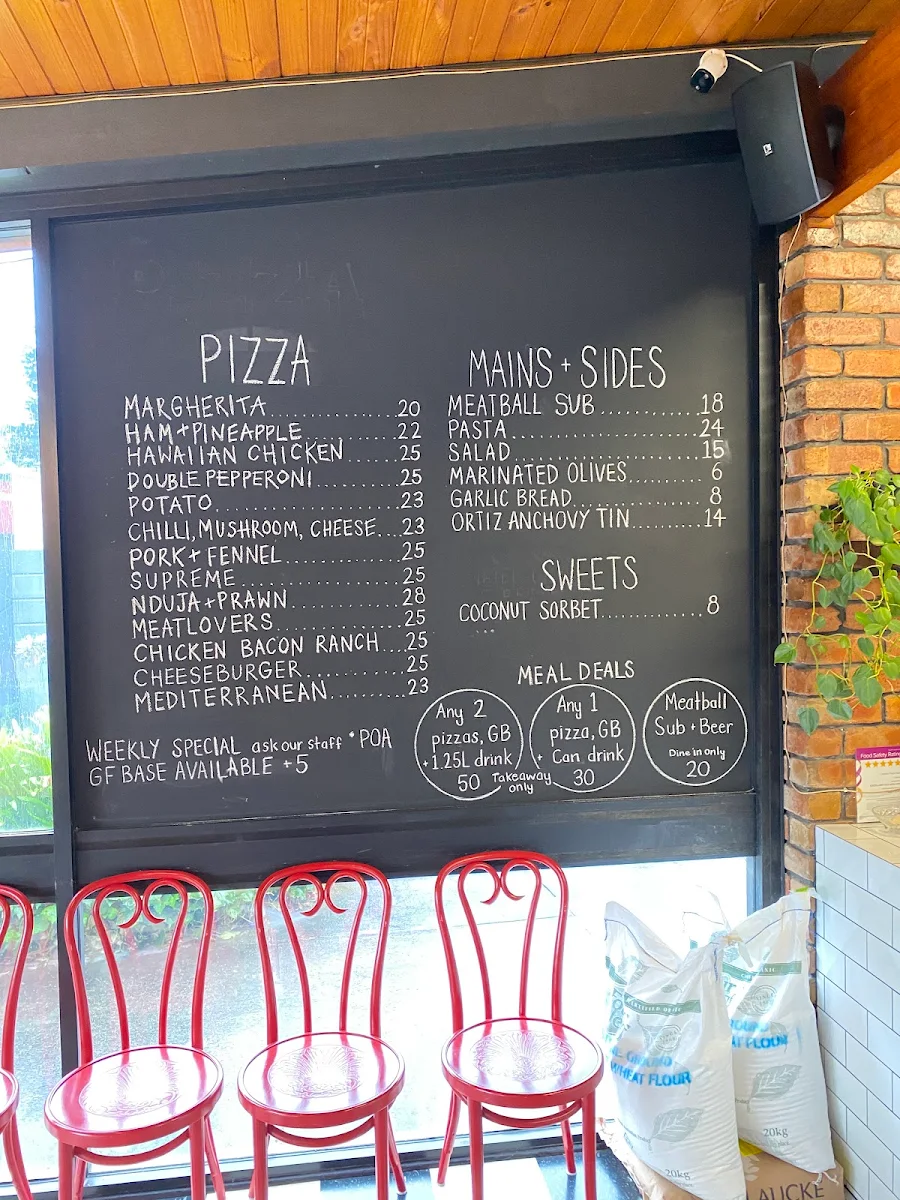 PIZZA
MARGHERITA....................20
HAM+PINEAPPLE..............22
HAWAIIAN CHICKEN........25
DOUBLE PEPPERONI..........25
POTATO..........................23
CHILLI, MUSHROOM, CHEESE...23
PORK+FENNEL................25
SUPREME........................25
NDUJA+PRAWN................28
MEATLOVERS..................25
CHICKEN BACON RANCH...25
CHEESEBURGER..............25
MEDITERRANEAN..........23
WEEKLY SPECIAL ask our staff *POA
GF BASE AVAILABLE +5
MAINS + SIDES
MEATBALL SUB............18
PASTA.........................24
SALAD........................15
MARINATED OLIVES..........6
GARLIC BREAD..............8
ORTIZ ANCHOVY TIN........14
SWEETS
COCONUT SORBET............8
MEAL DEALS
Any 2
pizzas, GB
+1.25L drink
50
Any 1
pizza, GB
+ Can drink
30
Takeaway
only
Meatball
Sub + Beer
Dine in only
20
Food Safety Rating
WHEAT FLOUR
20kg
20kg